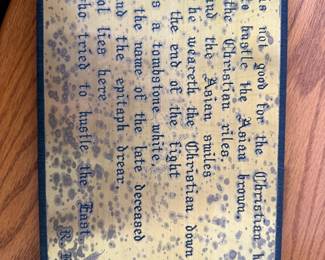 is not good for the Christian h
to hustle the Asian brown,
the Christian riles,
and the Asian smiles
he weareth the Christian down
the end of the fight
s a tombstone white,
the name of the late deceased
nd the epitaph drear,
ol lies here
ho tried to hustle the East.
R.